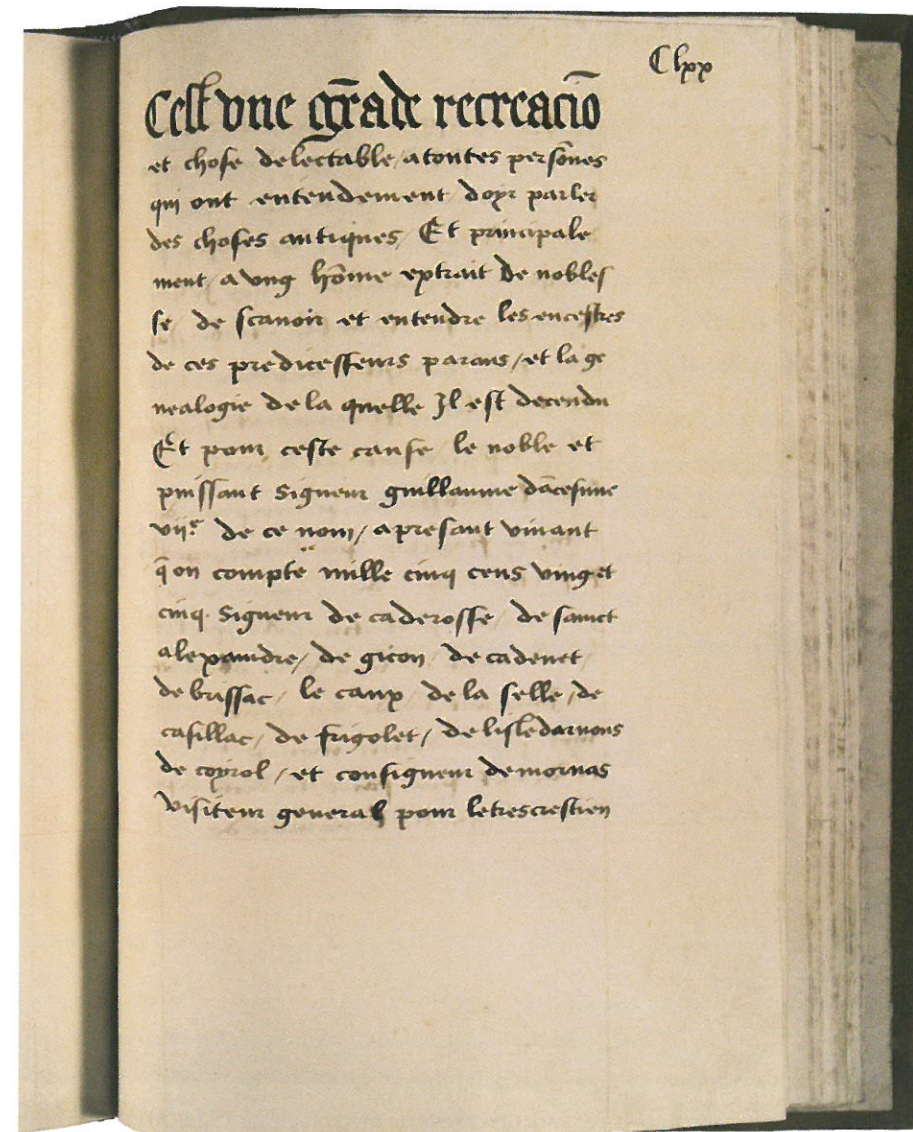 Clxx
Cest vne grāde recreaciō
et chose delectable / a toutes persōnes
qui ont entendement doyr parler
des choses antiques / Et principale
ment / a vng hōme extrait de nobles
se / de scauoir et entendre les encestres
de ces predicesseurs parans / et la ge
nealogie de la quelle Il est decendu
Et pour ceste cause / le noble et
puissant Signeur guillaume dācesune
vijᵉ de ce nom / apresant viuant
q̄ on compte mille cinq cens vingt et
cinq. Signeur de caderosse / de sainct
alexandre / de gicon / de cadenet /
de brissac / le caux / de la selle / de
casillac / de frigolet / de lisledarnons
de coyrol / et consigneur de mornas
visiteur general pour le trescrestien